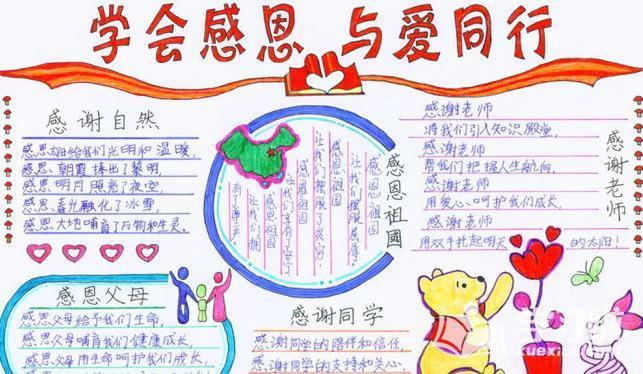 学会感恩 与爱同行
感谢自然
感恩太阳给我们光明和温暖,
感恩朝霞捧出了黎明,
感恩明月照亮了夜空,
感恩春光融化了冰雪,
感恩大地哺育了万物和生灵。
感恩祖國
感恩祖国
让我们摆脱屈辱,
感恩祖国
让我们摆脱了战穷,
感恩祖国
让我们享有了安宁
感恩祖国
让我们拥
有了尊严。
感谢老师
感谢老师
将我们引入知识殿堂,
感谢老师
帮我们把握人生航向,
感谢老师
用爱心呵护我们成长,
感谢老师
用双手托起明天 的太阳!
感恩父母
感恩父母给予我们生命,
感恩父母哺育我们健康成长,
感恩父母用生命呵护我们成长,
感谢同学
感谢同学的陪伴和信任,
感谢同学的支持和关心,